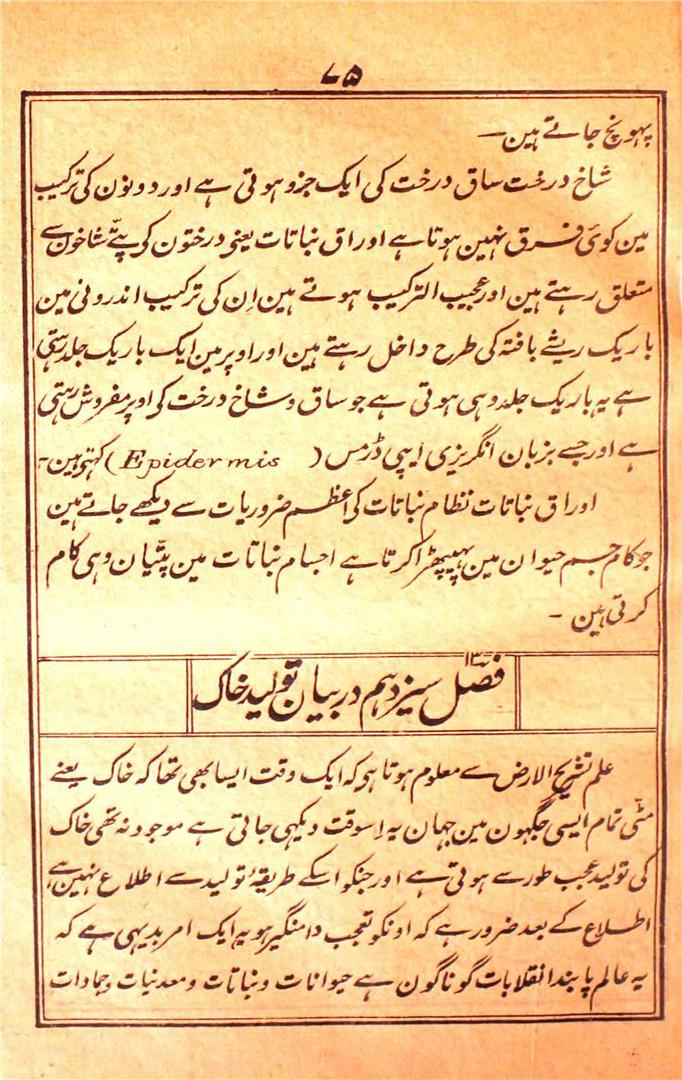 ۷۵
پہونچ جاتے ہین۔
شاخ درخت ساق درخت کی ایک جزو ہوتی ہے اور دونون کی ترکیب
مین کوئی فرق نہین ہوتا ہے اوراق نباتات یعنی درختون کی پتّے شاخون سے
متعلق رہتے ہین اور عجیب الترکیب ہوتے ہین اِن کی ترکیب اندرونی مین
باریک ریشے بافتہ کی طرح داخل رہتے ہین اور اوپر مین ایک باریک جلد رہتی
ہے یہ باریک جلد وہی ہوتی ہے جو ساق و شاخ درخت کی اوپر مفروش رہتی
ہے اور جسے بزبان انگریزی ایپی ڈرمس (Epidermis) کہتی ہین۔
اوراق نباتات نظام نباتات کی اعظم ضروریات سے دیکھے جاتے ہین
جو کام جسم حیوان مین پھیپھڑا کرتا ہے اجسام نباتات مین پتّیان وہی کام
کرتی ہین ۔
فصل سیزدہم ۱۳ در بیان تولید خاک
علم تشریح الارض سے معلوم ہوتا ہی کہ ایک وقت ایسا بھی تھا کہ خاک یعنے
مٹّی تمام ایسی جگہون مین جہان یہ اِسوقت دیکہی جاتی ہے موجود نہ تھی خاک
کی تولید عجب طور سے ہوتی ہے اور جنکو اسکے طریقۂ تولید سے اطلاع نہین ہے
اطلاع کے بعد ضرور ہے کہ اونکو تعجب دامنگیر ہو یہ ایک امر بدیہی ہے کہ
یہ عالم پابند انقلابات گوناگون ہے حیوانات و نباتات و معدنیات و جمادات